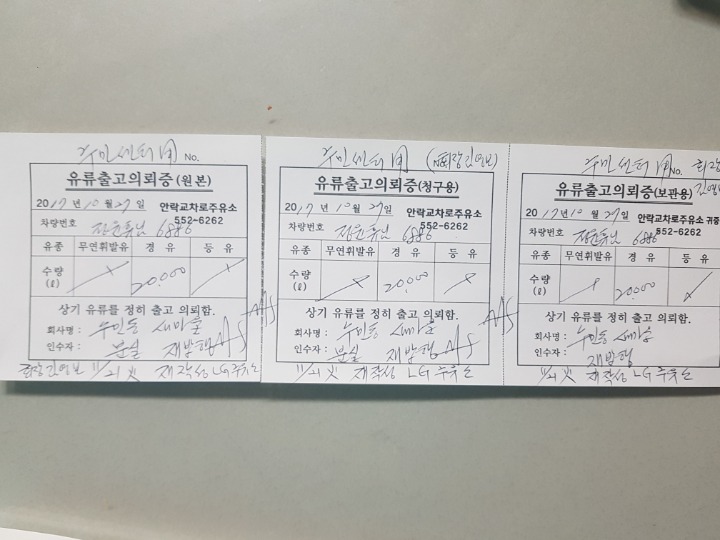 주민센터 用 No.
유류출고의뢰증(원본)
2017년 10월 27일 안락교차로주유소
552-6262
차량번호 6886
유종 무연휘발유 경유 등유
수량(ℓ) 20,000
상기 유류를 정히 출고 의뢰함.
회사명 : 새마을
인수자 : 분실 재발행
회장 김영보 11/21 火 재작성 LG주유소
주민센터 用 (회장김영보) No.
유류출고의뢰증(청구용)
2017년 10월 27일 안락교차로주유소
552-6262
차량번호 6886
유종 무연휘발유 경유 등유
수량(ℓ) 20,000
상기 유류를 정히 출고 의뢰함.
회사명 : 새마을
인수자 : 분실 재발행
11/21 火 재작성 LG주유소
주민센터 用 No. 회장
김영보
유류출고의뢰증(보관용)
2017년 10월 27일 안락교차로주유소 귀중
552-6262
차량번호 6886
유종 무연휘발유 경유 등유
수량(ℓ) 20,000
상기 유류를 정히 출고 의뢰함.
회사명 : 새마을
인수자 : 재발행
11/21 火 재작성 LG주유소